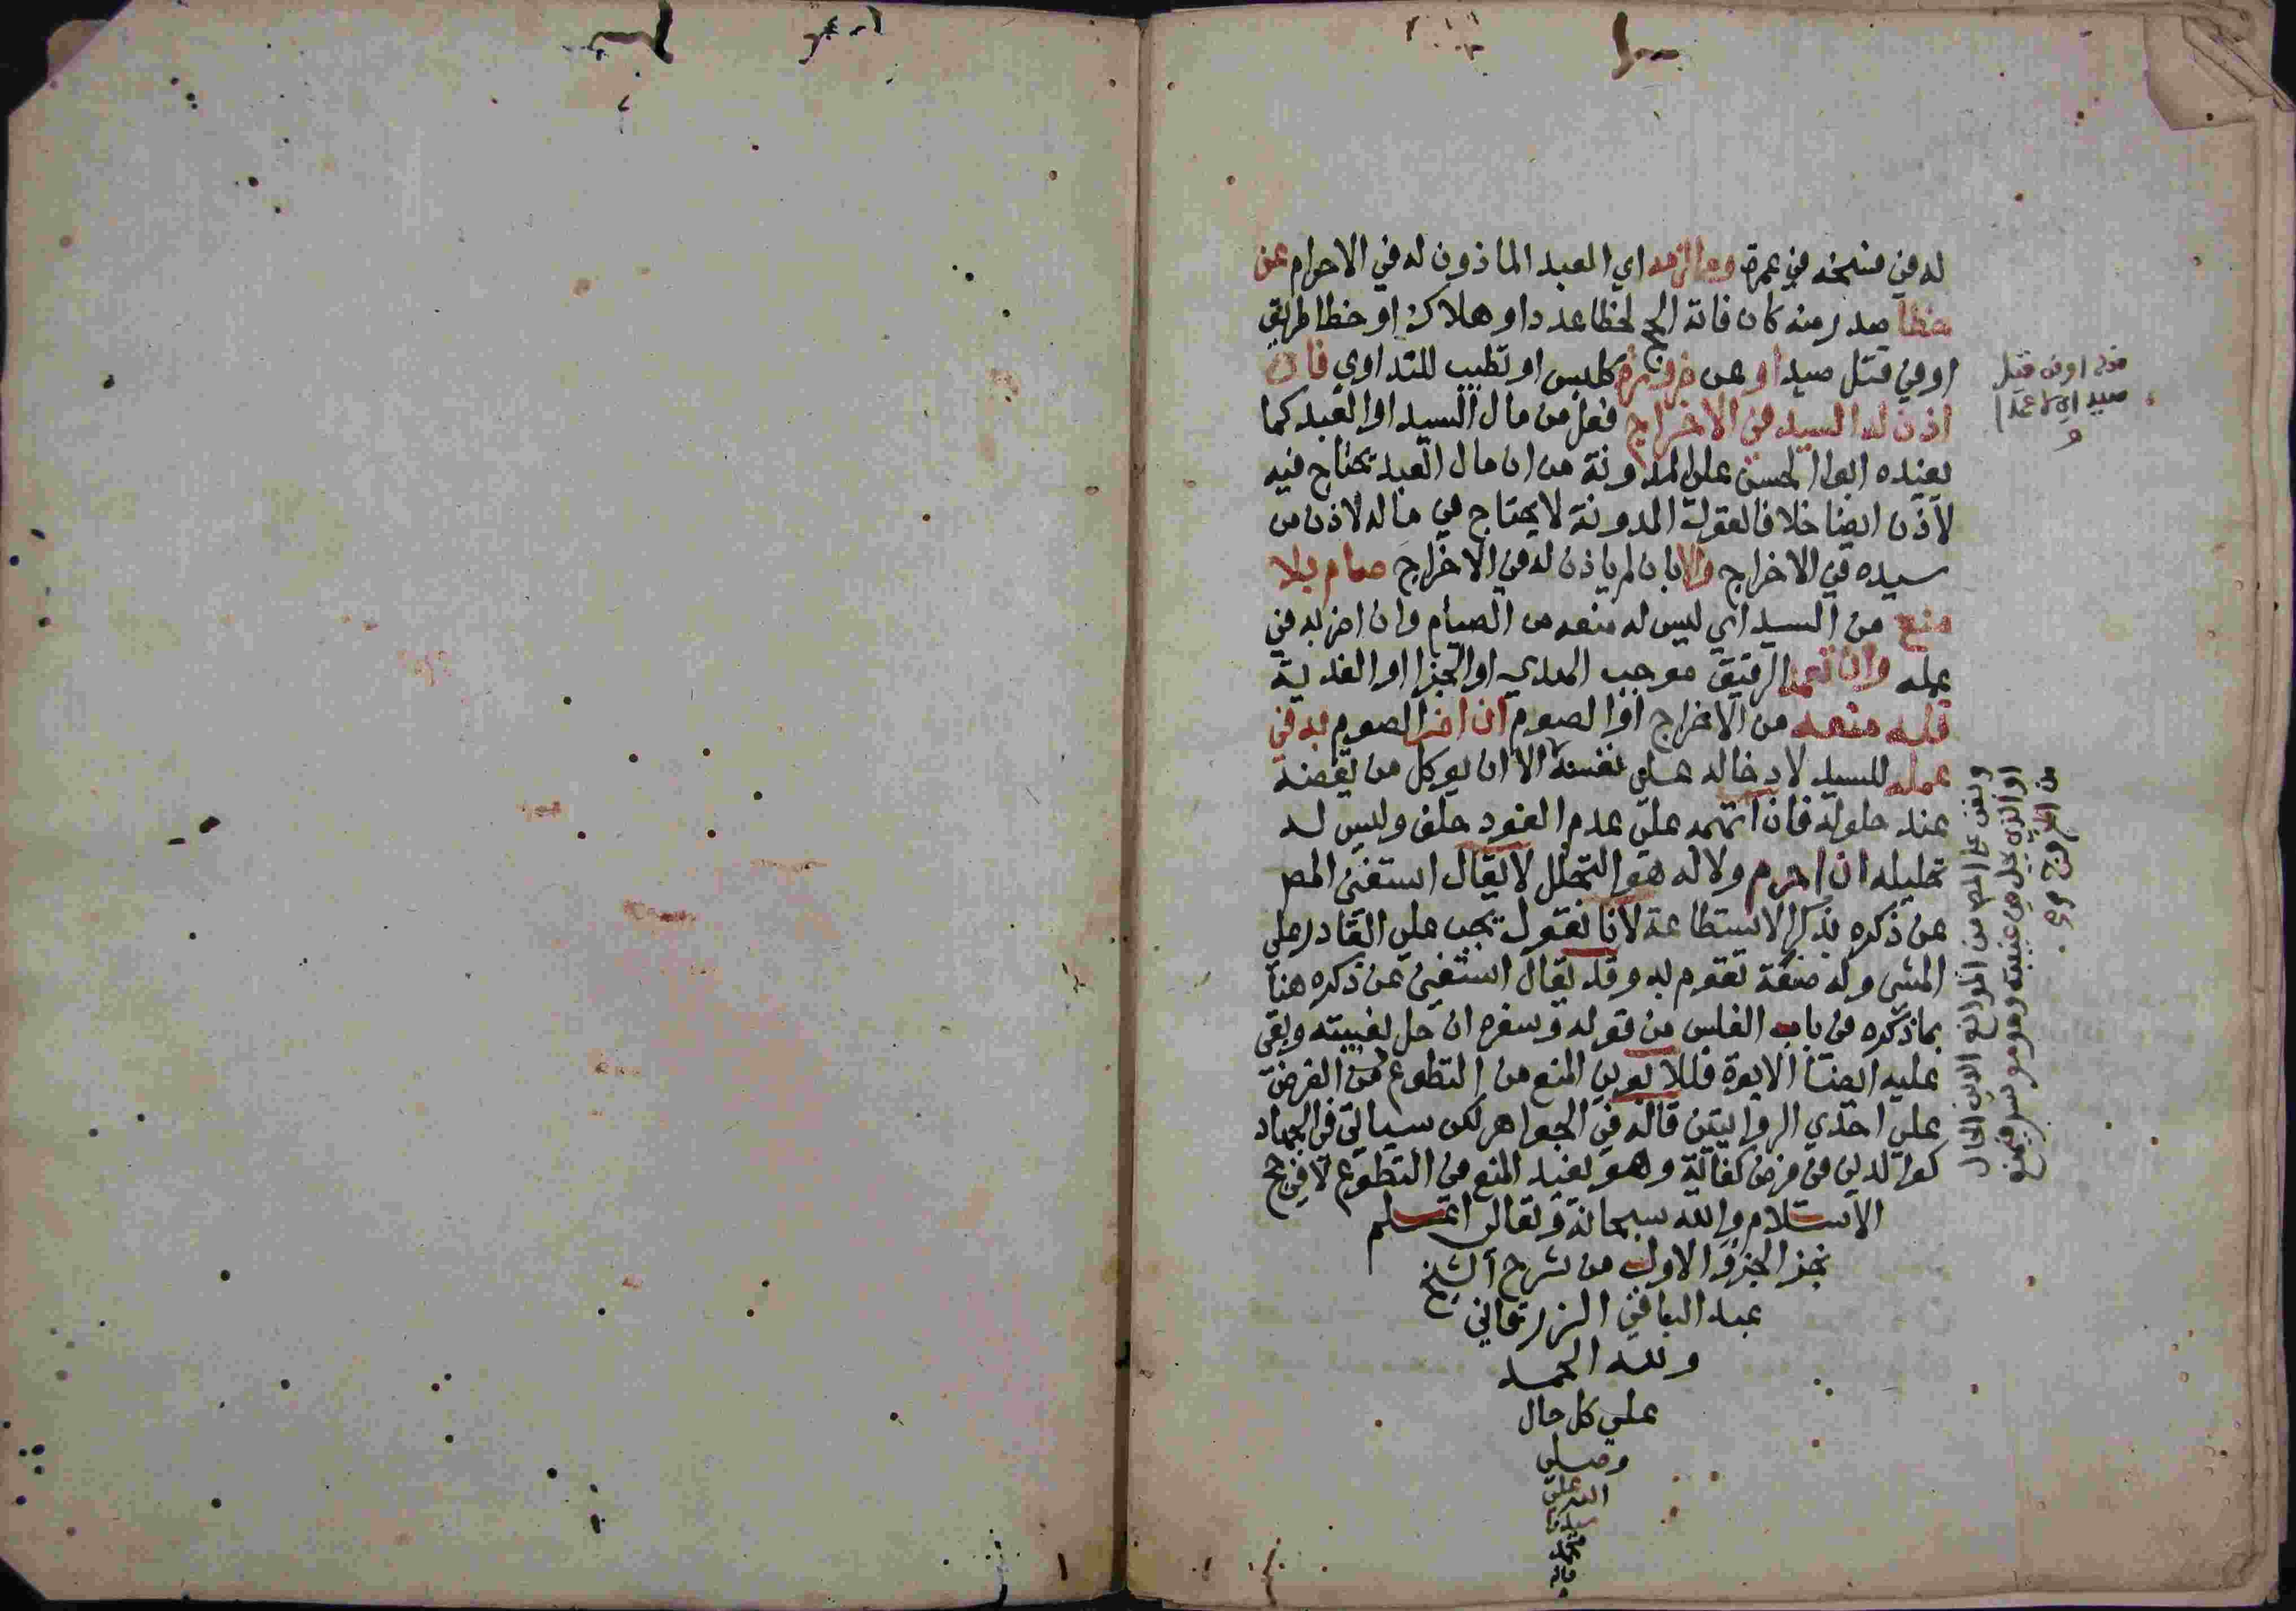 له في فسخه في عمرة وما لزمه اي العبد الماذون له في الاحرام عن
خطا صدر منه كان فاته الحج لخطا عدد او هلاك او خطا طريق
او في قتل صيد او عن ضرورة كلبس او تطيب للتداوي فان
اذن له السيد في الاخراج فعل من مال السيد او العبد كما
يفيده ابوا الحسن علي المدونة من ان مال العبد يحتاج فيه
لاذن ايضا خلافا لقول المدونة لا يحتاج في ماله لاذن من
سيده في الاخراج والا بان لم ياذن له في الاخراج صام بلا
منع من السيد اي ليس له منعه من الصيام وان اضر به في
عمله وان تعمد الرقيق موجب الهدي او الجزا او الفدية
فله منعه من الاخراج او الصوم ان اضر الصوم به في
عمله للسيد لادخاله علي نفسه الا ان يوكل من يقضه
عند حلوله فان اتهمه علي عدم العود حلف وليس له
تحليله ان احرم ولا له هو التحلل لا يقال استغني المص
عن ذكره بذكر الاستطاعة لانا نقول يجب علي القادر علي
المشي وله صنعة تقوم به وقد يقال استغني عن ذكره هنا
بما ذكره في باب الفلس من قوله وسفره ان حل بغيبته وبقي
عليه ايضا الابوة فللابوين المنع من التطوع ومن الفرض
علي احدي الروايتين قاله في الجواهر لكن سياتي في الجهاد
كوالدين في فرض كفاية وهو يفيد المنع من التطوع لا في حج
الاسلام والله سبحانه وتعالي اعلم
نجز الجزؤ الاول من شرح الشيخ
عبد الباقي الزرقاني
ولله الحمد
علي كل حال
وصلي
الله علي
سيدنا
محمد
واله
قوله او في قتل
صيد اي لا عمدا
وبقي علي المص من الموانع الدين الحال
او الذي يحل في غيبته وهو موسر فيمنع
من الخروج